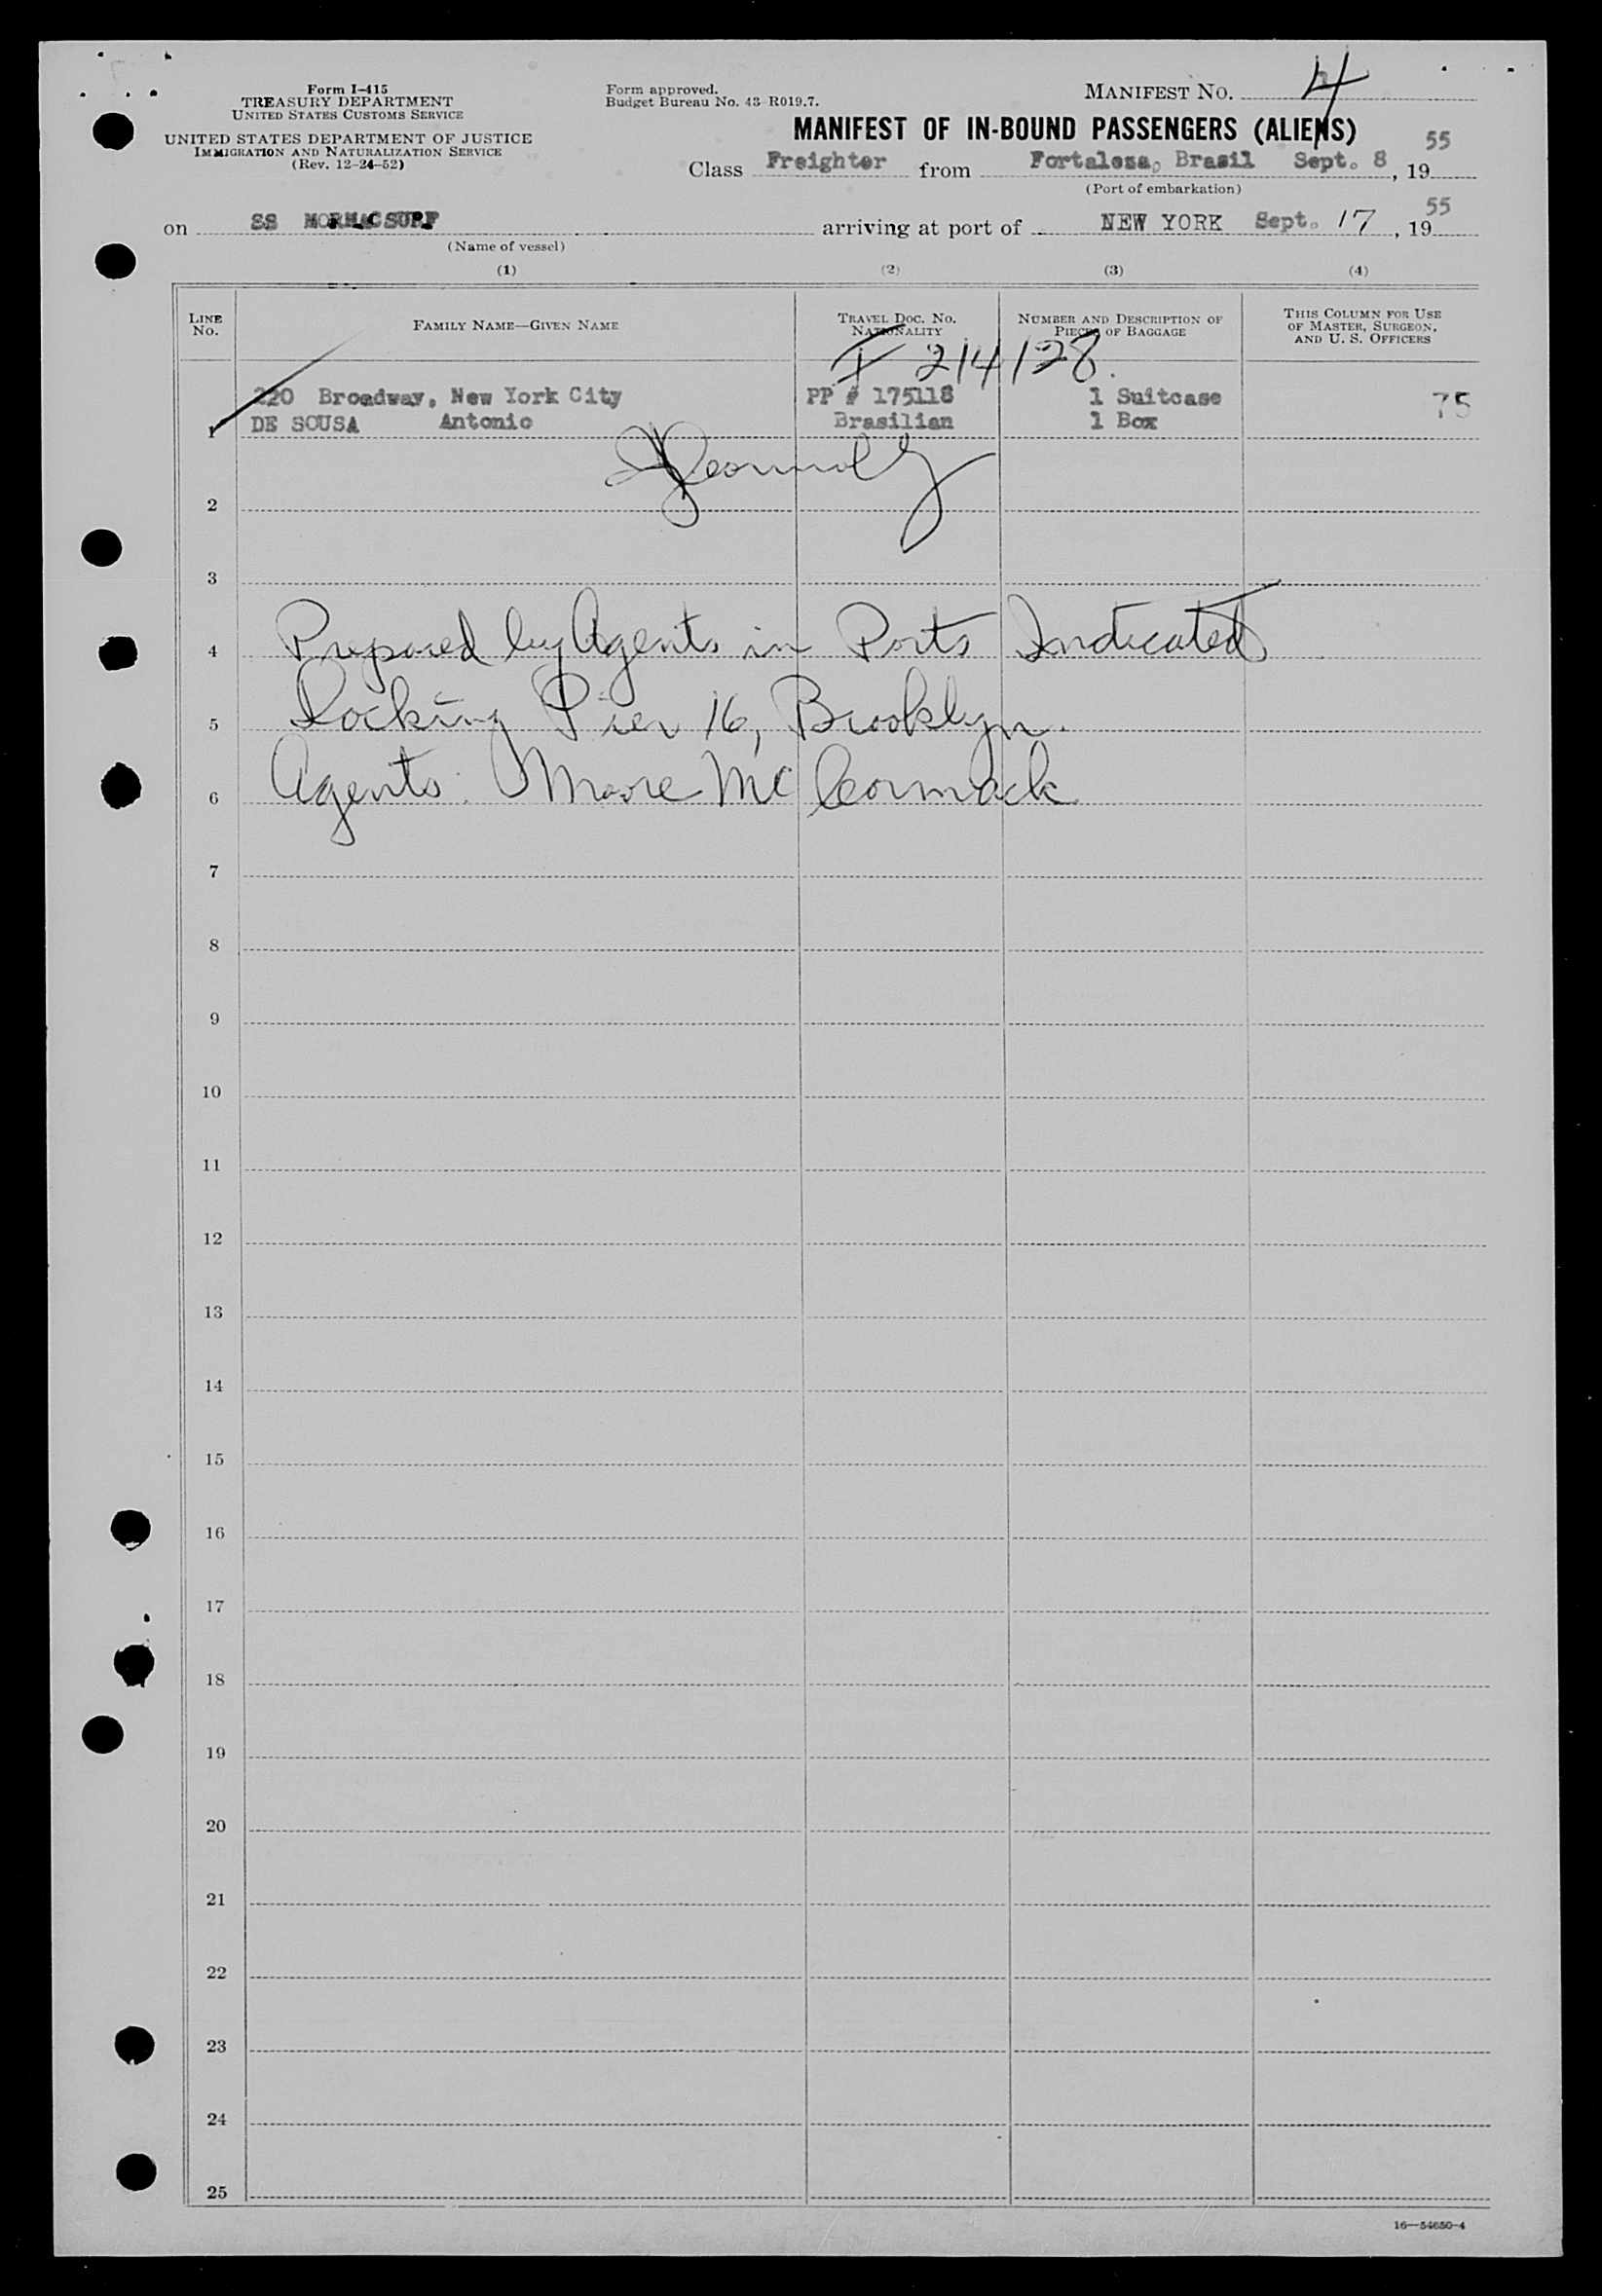 Form I-415
TREASURY DEPARTMENT
UNITED STATES CUSTOMS SERVICE
UNITED STATES DEPARTMENT OF JUSTICE
IMMIGRATION AND NATURALIZATION SERVICE
(Rev. 12-24-52)
Form approved.
Budget Bureau No. 43-R019.7.
MANIFEST NO. 4
MANIFEST OF IN-BOUND PASSENGERS (ALIENS)
Class Freighter from Fortalesa, Brasil Sept. 8, 1955
(Port of embarkation)
on SS MORMACSURF arriving at port of NEW YORK Sept. 17, 1955
(Name of vessel)
(1) (2) (3) (4)
LINE NO. FAMILY NAME—GIVEN NAME TRAVEL DOC. NO. NATIONALITY NUMBER AND DESCRIPTION OF PIECES OF BAGGAGE THIS COLUMN FOR USE OF MASTER, SURGEON, AND U. S. OFFICERS
I 214128
220 Broadway, New York City PP # 175118 1 Suitcase 75
1 DE SOUSA Antonio Brasilian 1 Box
2
3
4 Prepared by Agents in Ports Indicated
5 Docking Pier 16, Brooklyn.
6 Agents: Moore McCormack
7
8
9
10
11
12
13
14
15
16
17
18
19
20
21
22
23
24
25
16—54650-4